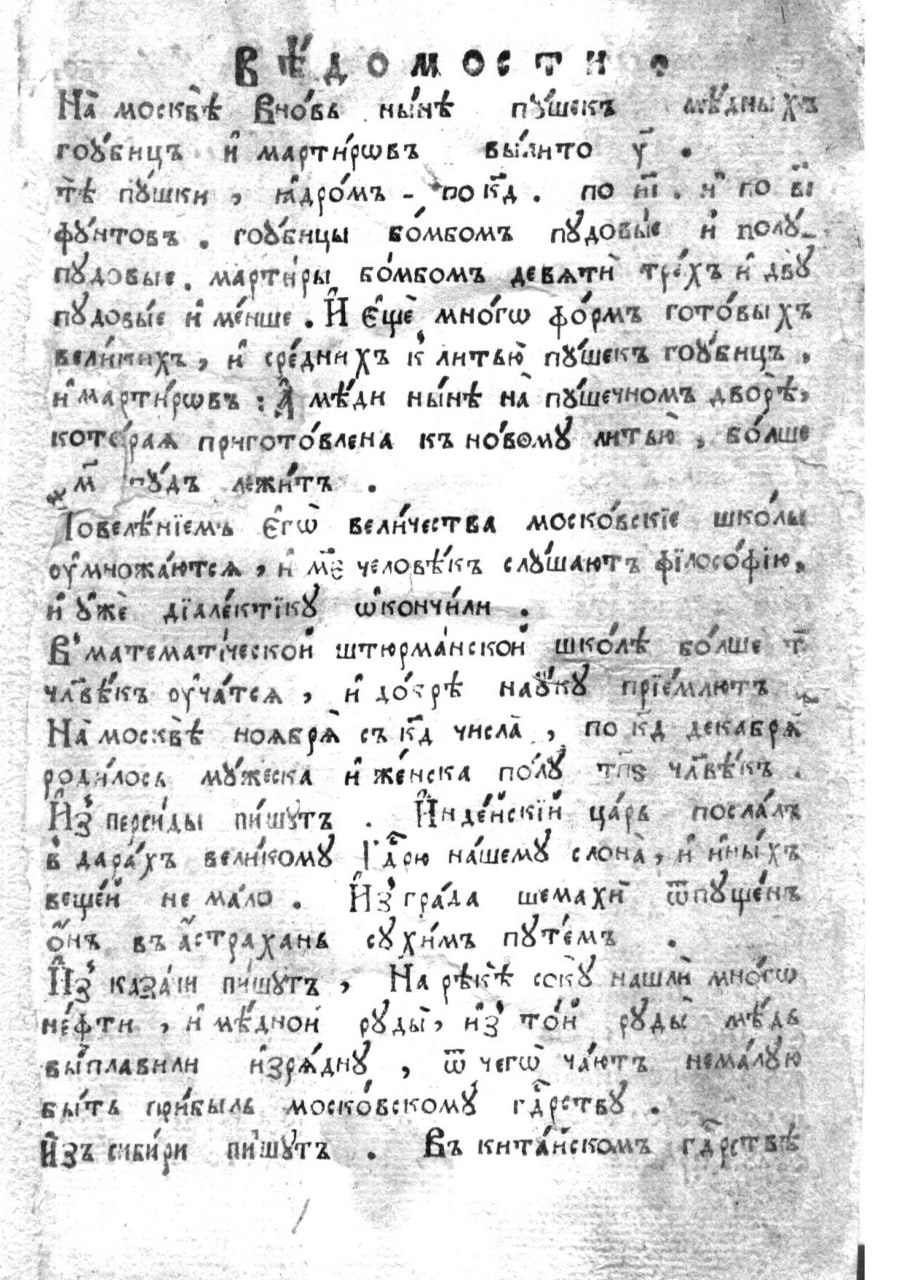 Вѣ́домости .
На̀ москвѣ̀ вно́вь ны́нѣ пꙋ́шекъ мѣ́дныхъ
гоꙋбицъ и҆ марти́рѡвъ вы́лито у҃ .
тѣ̀ пꙋ́шки , ꙗ҆дро́мъ - по к҃д . по н҃і . и҆ по в҃і
фꙋ́нтовъ . гоꙋбицы бо́мбомъ пꙋдовы́е и҆ полꙋ_
пꙋдовые . марти́ры бо́мбомъ девѧтѝ тре́хъ и҆ двꙋ̀
пꙋдовы́е и҆ ме́нше . И҆ є҆щѐ мно́гѡ фо́рмъ гото́выхъ
вели́кихъ , и҆ сре́днихъ к̾ литью̀ пꙋ́шекъ гоꙋбицъ ,
и҆ марти́рѡвъ : А҆ мѣ́ди ны́нѣ на̀ пꙋ́шечномъ дворѣ̀,
кото́раѧ пригото́влена къ но́вомꙋ литью̀ , бо́лше
м҃ пꙋ́дъ лежи́тъ .
Повелѣ́нїемъ є҆гѡ̀ вели́чества моско́вскїе шко́лы
оу҆множа́ютсѧ , и҆ м҃е человѣ́къ слꙋ́шаютъ фїлосо́фїю,
и҆ ᲂу҆жѐ дїале́ктїкꙋ ѡ҆ко́нчили .
В̾ математи́ческой штюрма́нской шко́лѣ бо́лше т҃
члв҃ѣкъ оу҆ча́тсѧ , и҆ до́брѣ наꙋ́кꙋ прїе́млютъ .
На̀ москвѣ̀ ноѧбрѧ̀ съ к҃д числа̀ , по к҃д декабрѧ̀
роди́лось мꙋ́жеска и҆ же́нска по́лꙋ т҃пѕ члв҃ѣ́къ .
И҆з̾ перси́ды пи́шꙋтъ . И҆нде́йскїй ца́рь посла́лъ
в̾ дара́хъ вели́комꙋ Гдⷭ҇рю на́шемꙋ слона̀ , и҆ и҆ны́хъ
веще́й не ма́ло . И҆з̾ гра́да шемахѝ ѿпꙋще́нъ
о҆́нъ въ а҆́страхань сꙋхи́мъ пꙋте́мъ .
И҆з̾ каза́ни пи́шꙋтъ , На рѣкѣ̀ сокꙋ̀ нашлѝ мно́гѡ
не́фти , и҆ мѣ́дной рꙋды̀, и҆з̾ то́й рꙋды̀ мѣ́дь
вы́плавили и҆зрѧ́днꙋ , ѿ чегѡ̀ ча́ютъ нема́лꙋю
бы́ть при́быль моско́вскомꙋ гдⷭ҇рствꙋ .
И҆зъ сиби́ри пи́шꙋтъ . Въ кита́йскомъ гдⷭ҇рствѣ